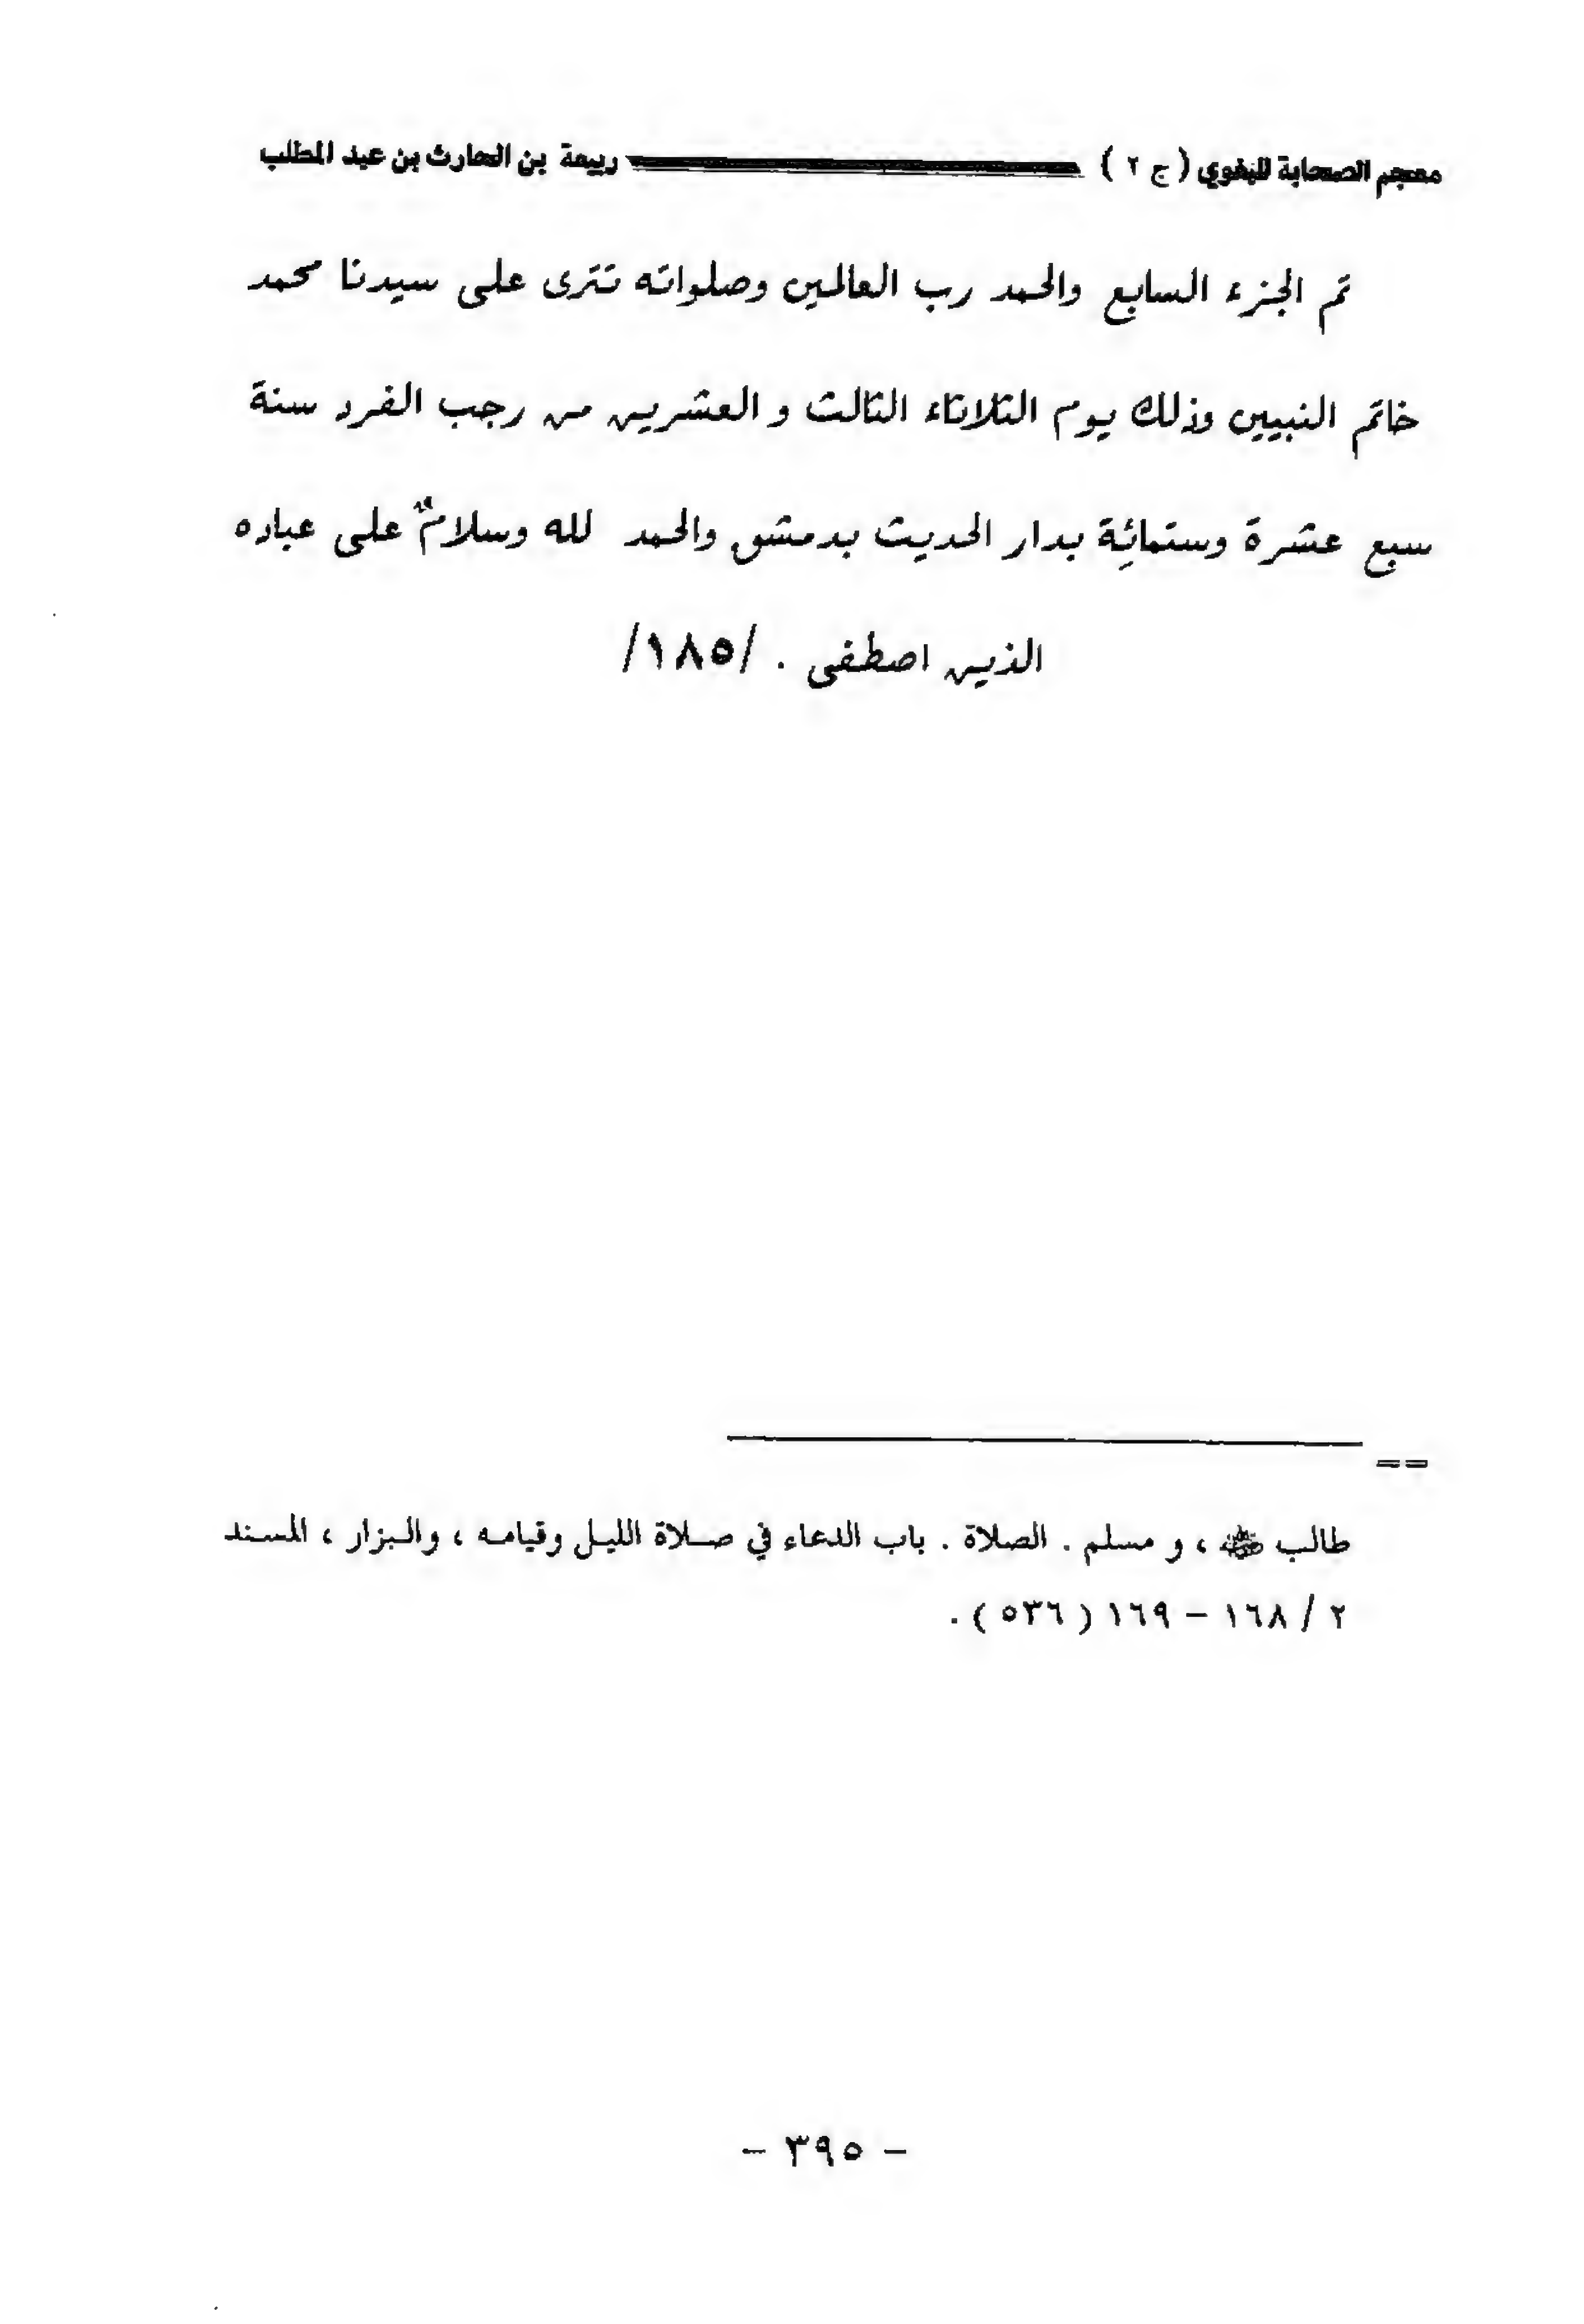 معجم الصحابة للبغوي ( ج ٢ ) ربيعة بن الحارث بن عبد المطلب
تم الجزء السابع والحمد رب العالمين وصلواته تترى على سيدنا محمد
خاتم النبيين وذلك يوم الثلاثاء الثالث و العشرين من رجب الفرد سنة
سبع عشرة وستمائِة بدار الحديث بدمشق والحمد لله وسلامٌ على عباده
الذين اصطفى . /١٨٥/
==
طالب ﷺ ، و مسلم . الصلاة . باب الدعاء في صلاة الليل وقيامه ، والبزار ، المسند
٢ / ١٦٨ – ١٦٩ ( ٥٣٦ ) .
– ٣٩٥ –